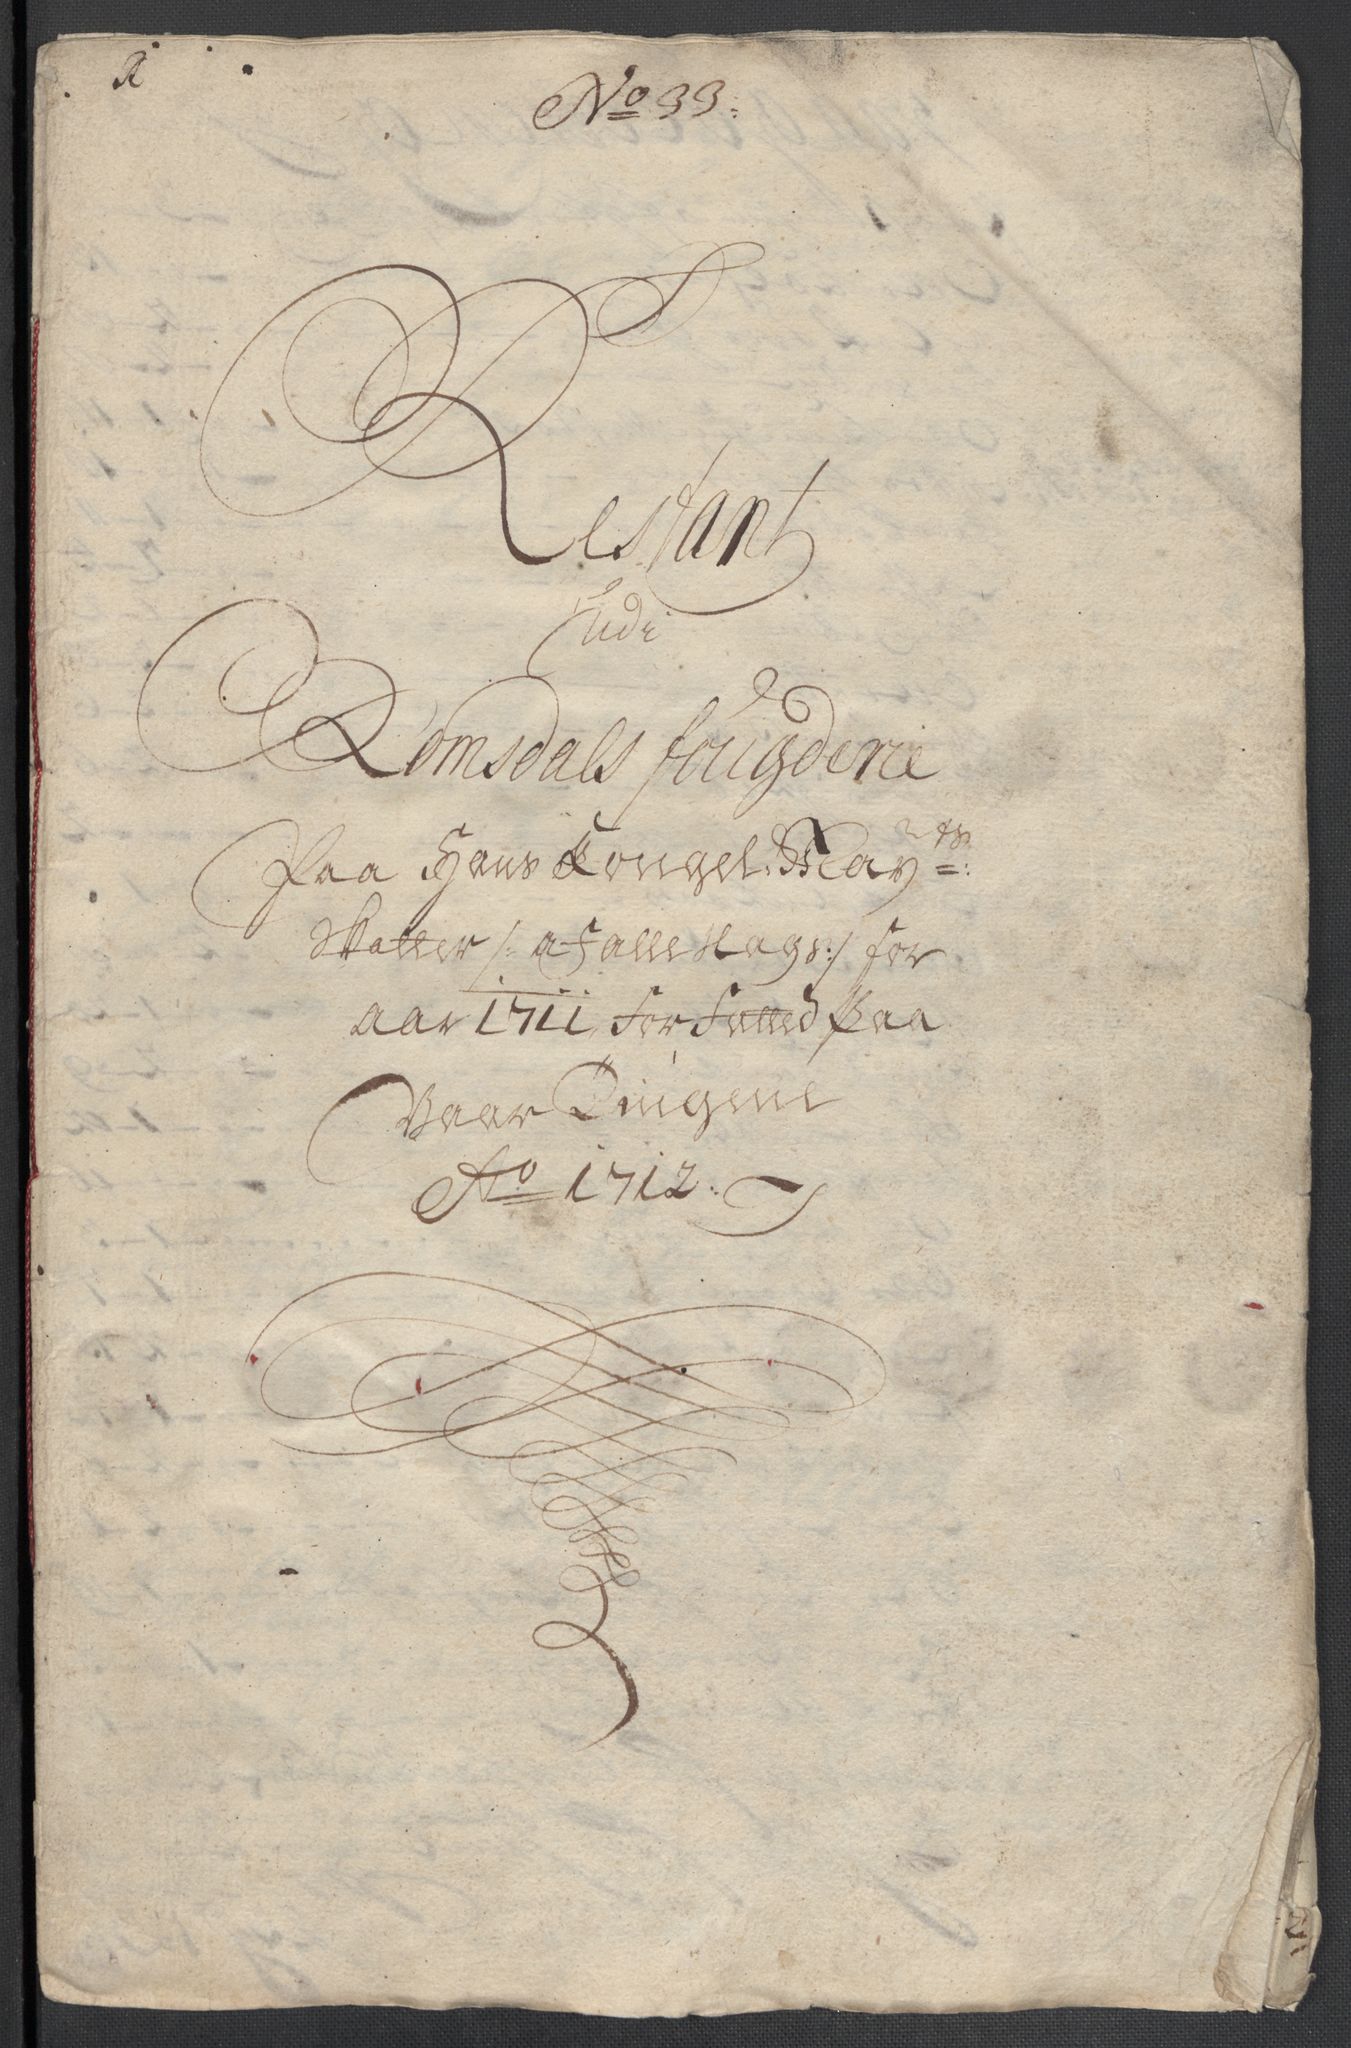 No 33:
Restant
udi
Romsdals fougderie
Paa Hans Kongel: May ts:
Skatter /: af alle slags :/ for
aar 1711, forfatted paa
Vaar Tingene
Ao 1712.